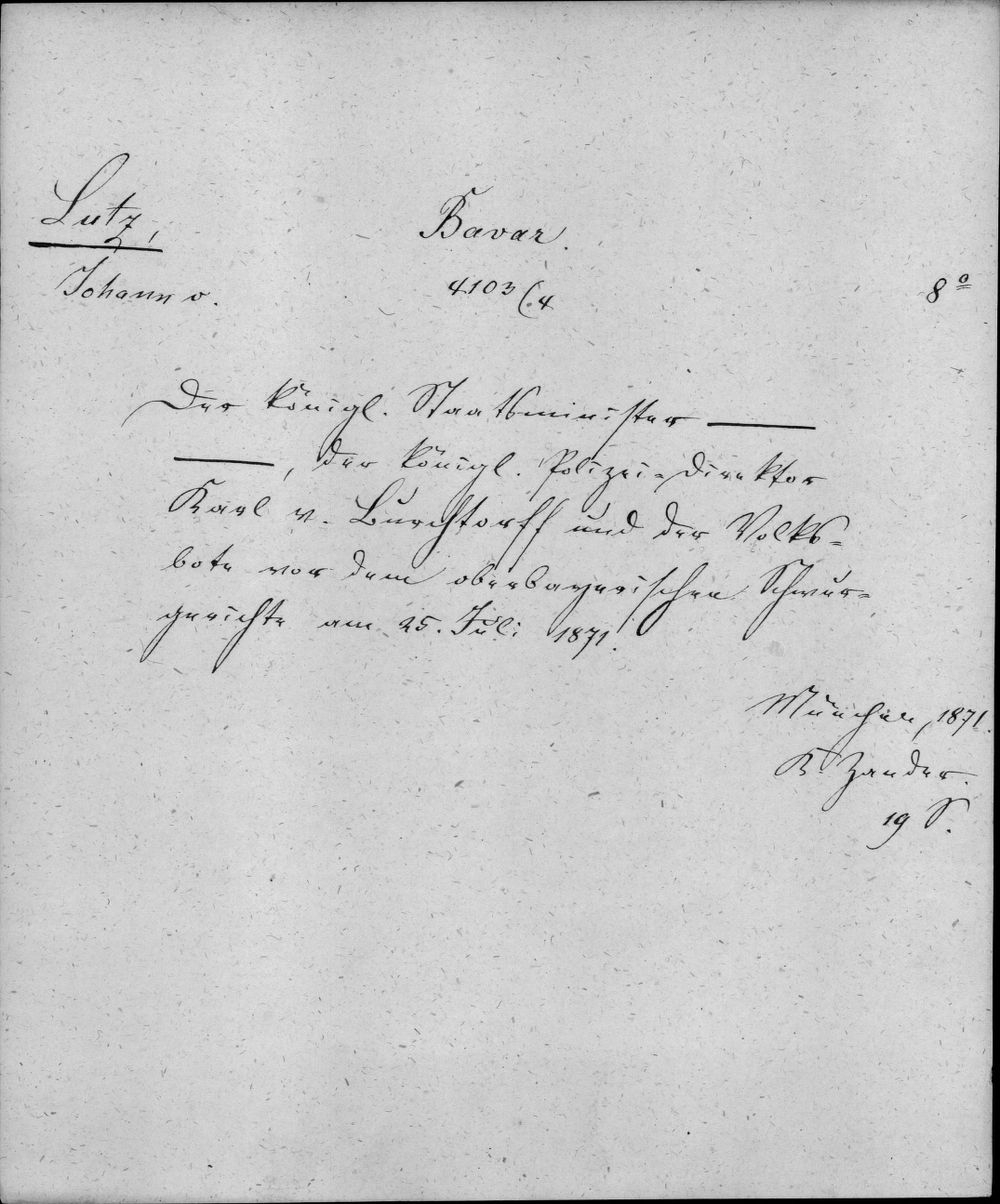 Lutz,
Johann v.
Bavar.
4103 (:4
8º
Der königl. Staatsminister ———
———, der königl. Polizei-Direktor
Karl v. Burchtorff und der Volks=
bote vor dem oberbayerischen Schwur=
gerichte am 25. Juli 1871.
München, 1871.
K. Zander.
19 S.